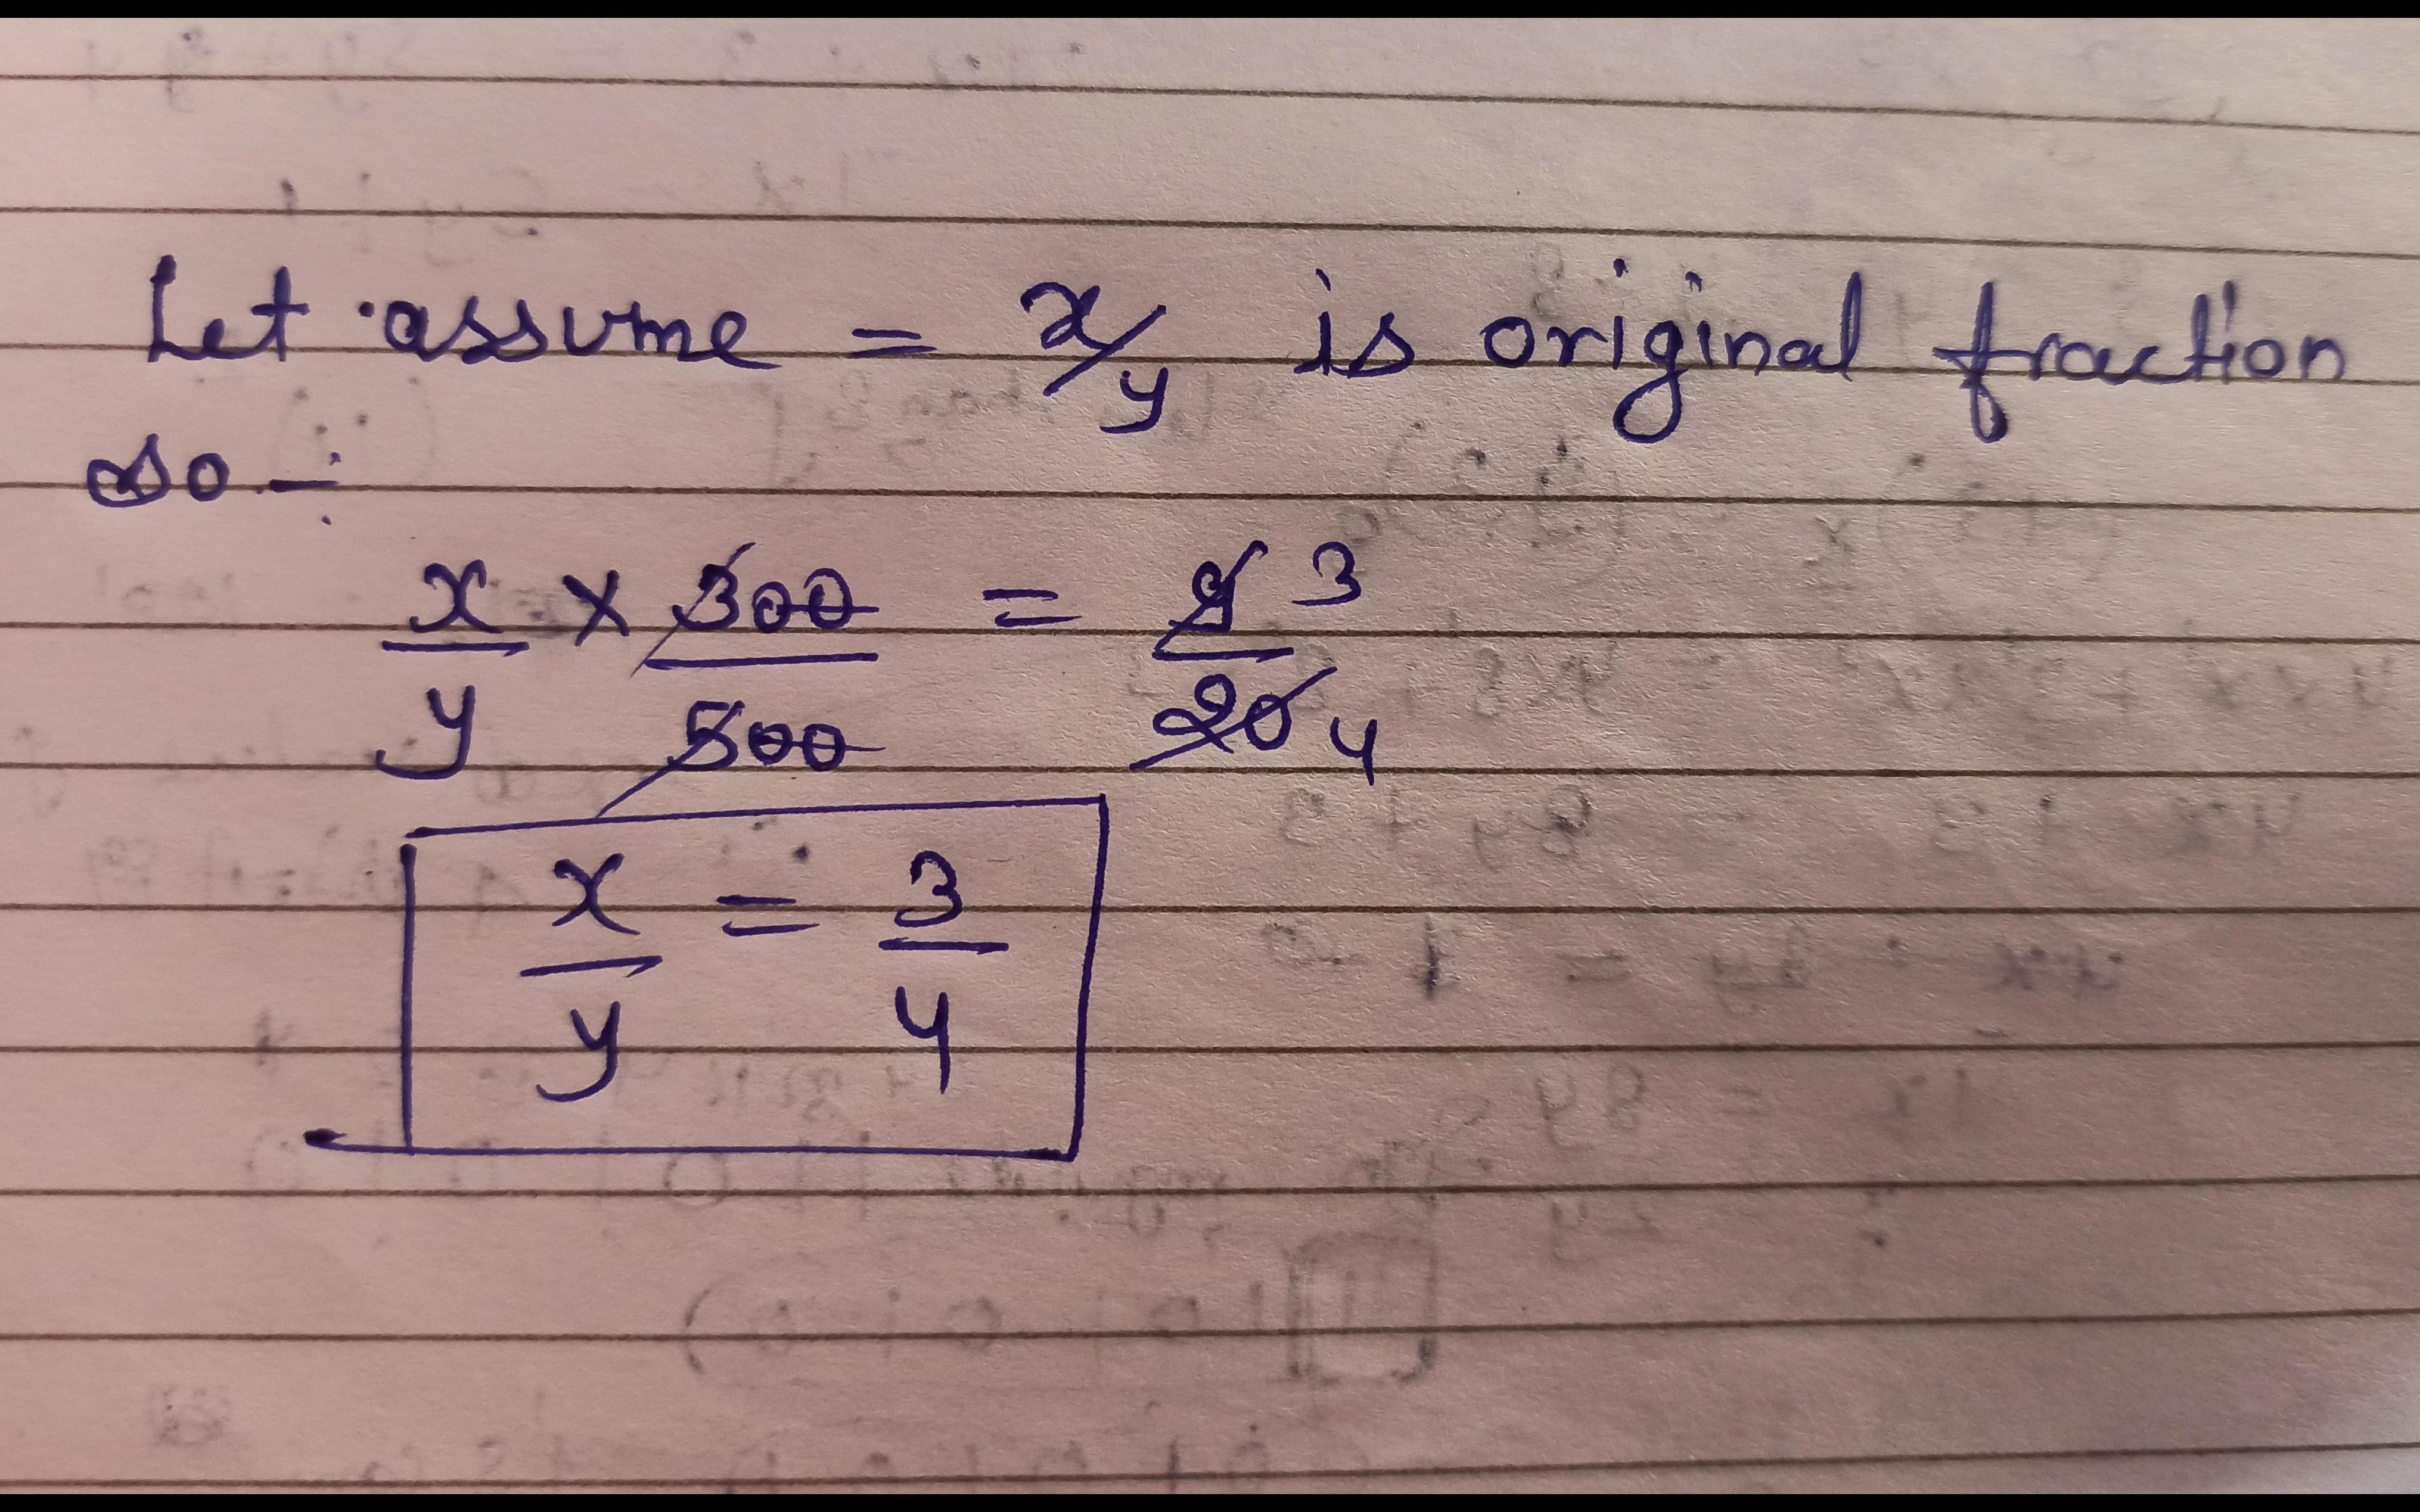 Let assume = x/y is original fraction
so :-
x/y × 300/500 = 9/20 3 4
x/y = 3/4